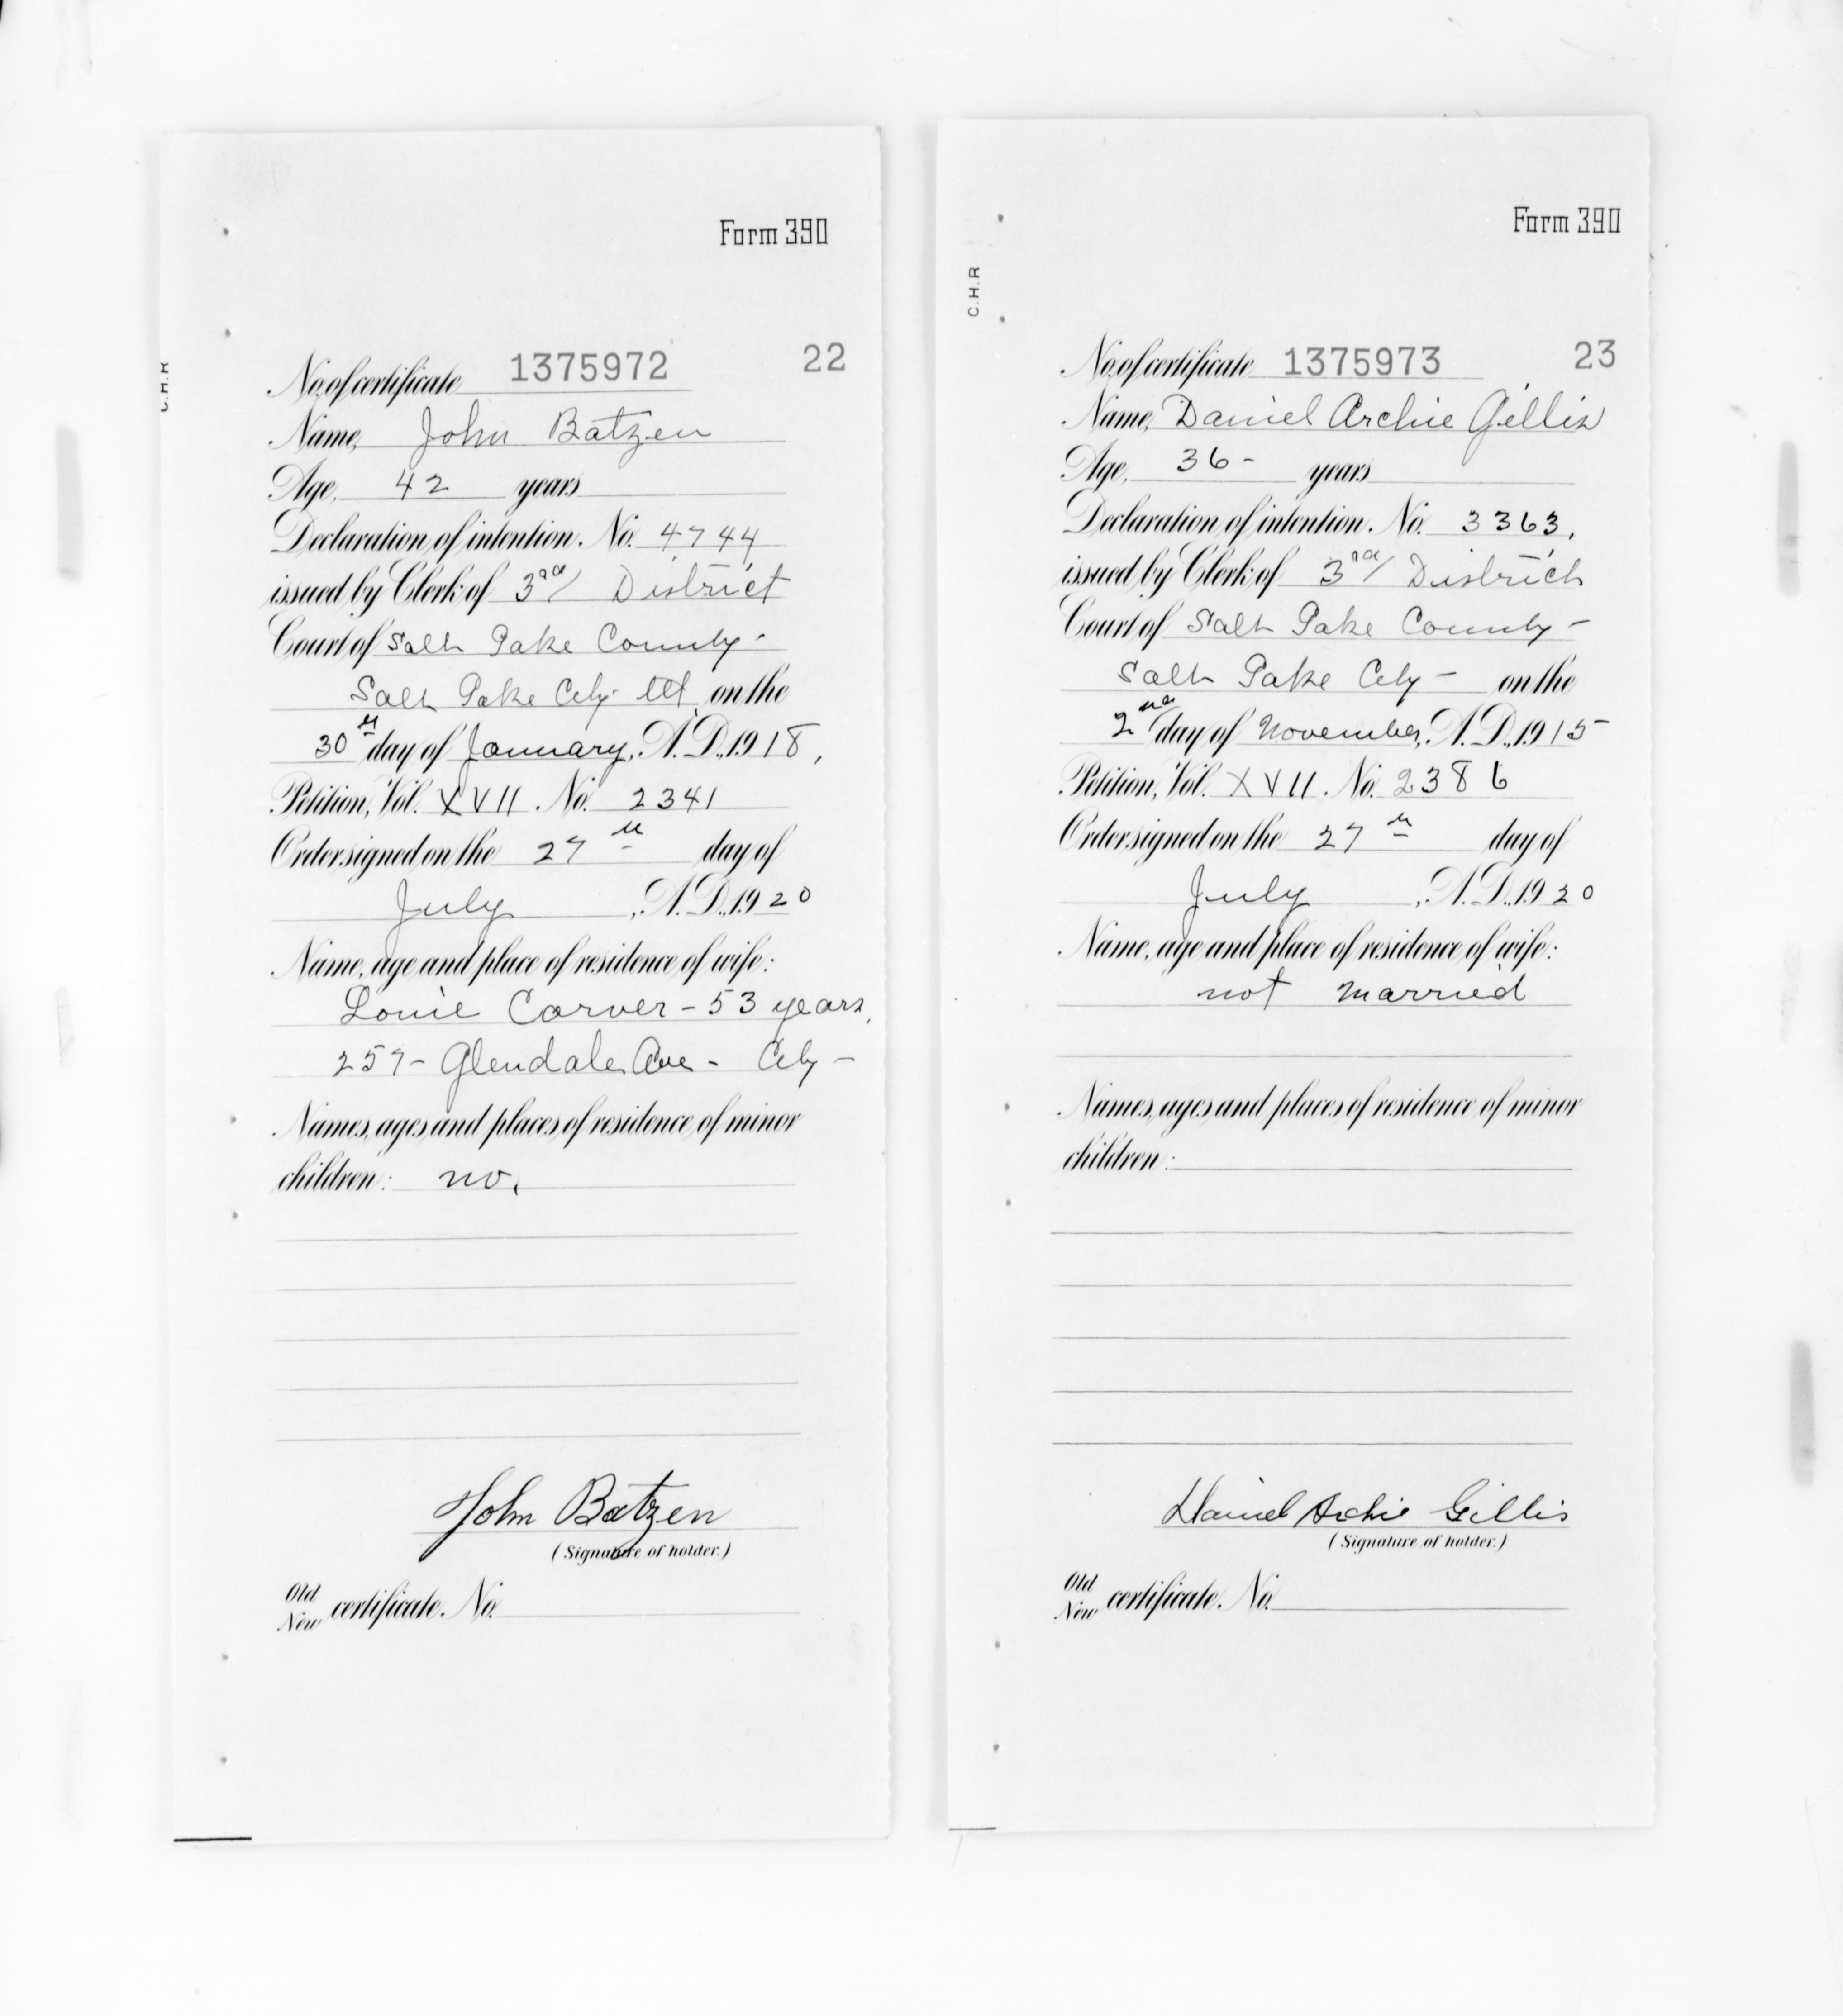 Form 390
C.H.R
No. of certificate 1375972 22
Name, John Batzen
Age, 42 years
Declaration of intention. No. 4744
issued by Clerk of 3rd District
Court of Salt Lake County -
Salt Lake City Ut. on the
30th day of January, A.D., 1918,
Petition, Vol. XVII. No. 2341
Order signed on the 27th day of
July, A.D., 1920
Name, age and place of residence of wife:
Louie Carver - 53 years,
257 - Glendale Ave - City -
Names, ages and places of residence of minor
children: no.
John Batzen
(Signature of holder.)
Old
New certificate. No.
Form 390
C.H.R
No. of certificate 1375973 23
Name, Daniel Archie Gillis
Age, 36 - years
Declaration of intention. No. 3363,
issued by Clerk of 3rd District
Court of Salt Lake County -
Salt Lake City - on the
2nd day of November, A.D., 1915
Petition, Vol. XVII. No. 2386
Order signed on the 27th day of
July, A.D., 1920
Name, age and place of residence of wife:
not married
Names, ages and places of residence of minor
children:
Daniel Archie Gillis
(Signature of holder.)
Old
New certificate. No.